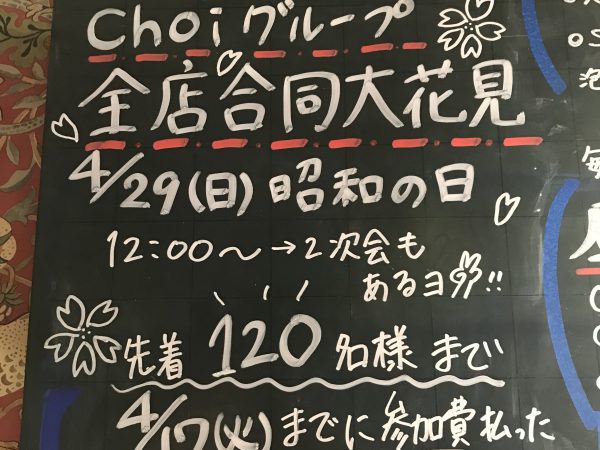 Choiグループ
全店合同大花見
4/29(日)昭和の日
12:00～→2次会も
あるヨ!!
先着 120 名様まで
4/17(火)までに参加費払った